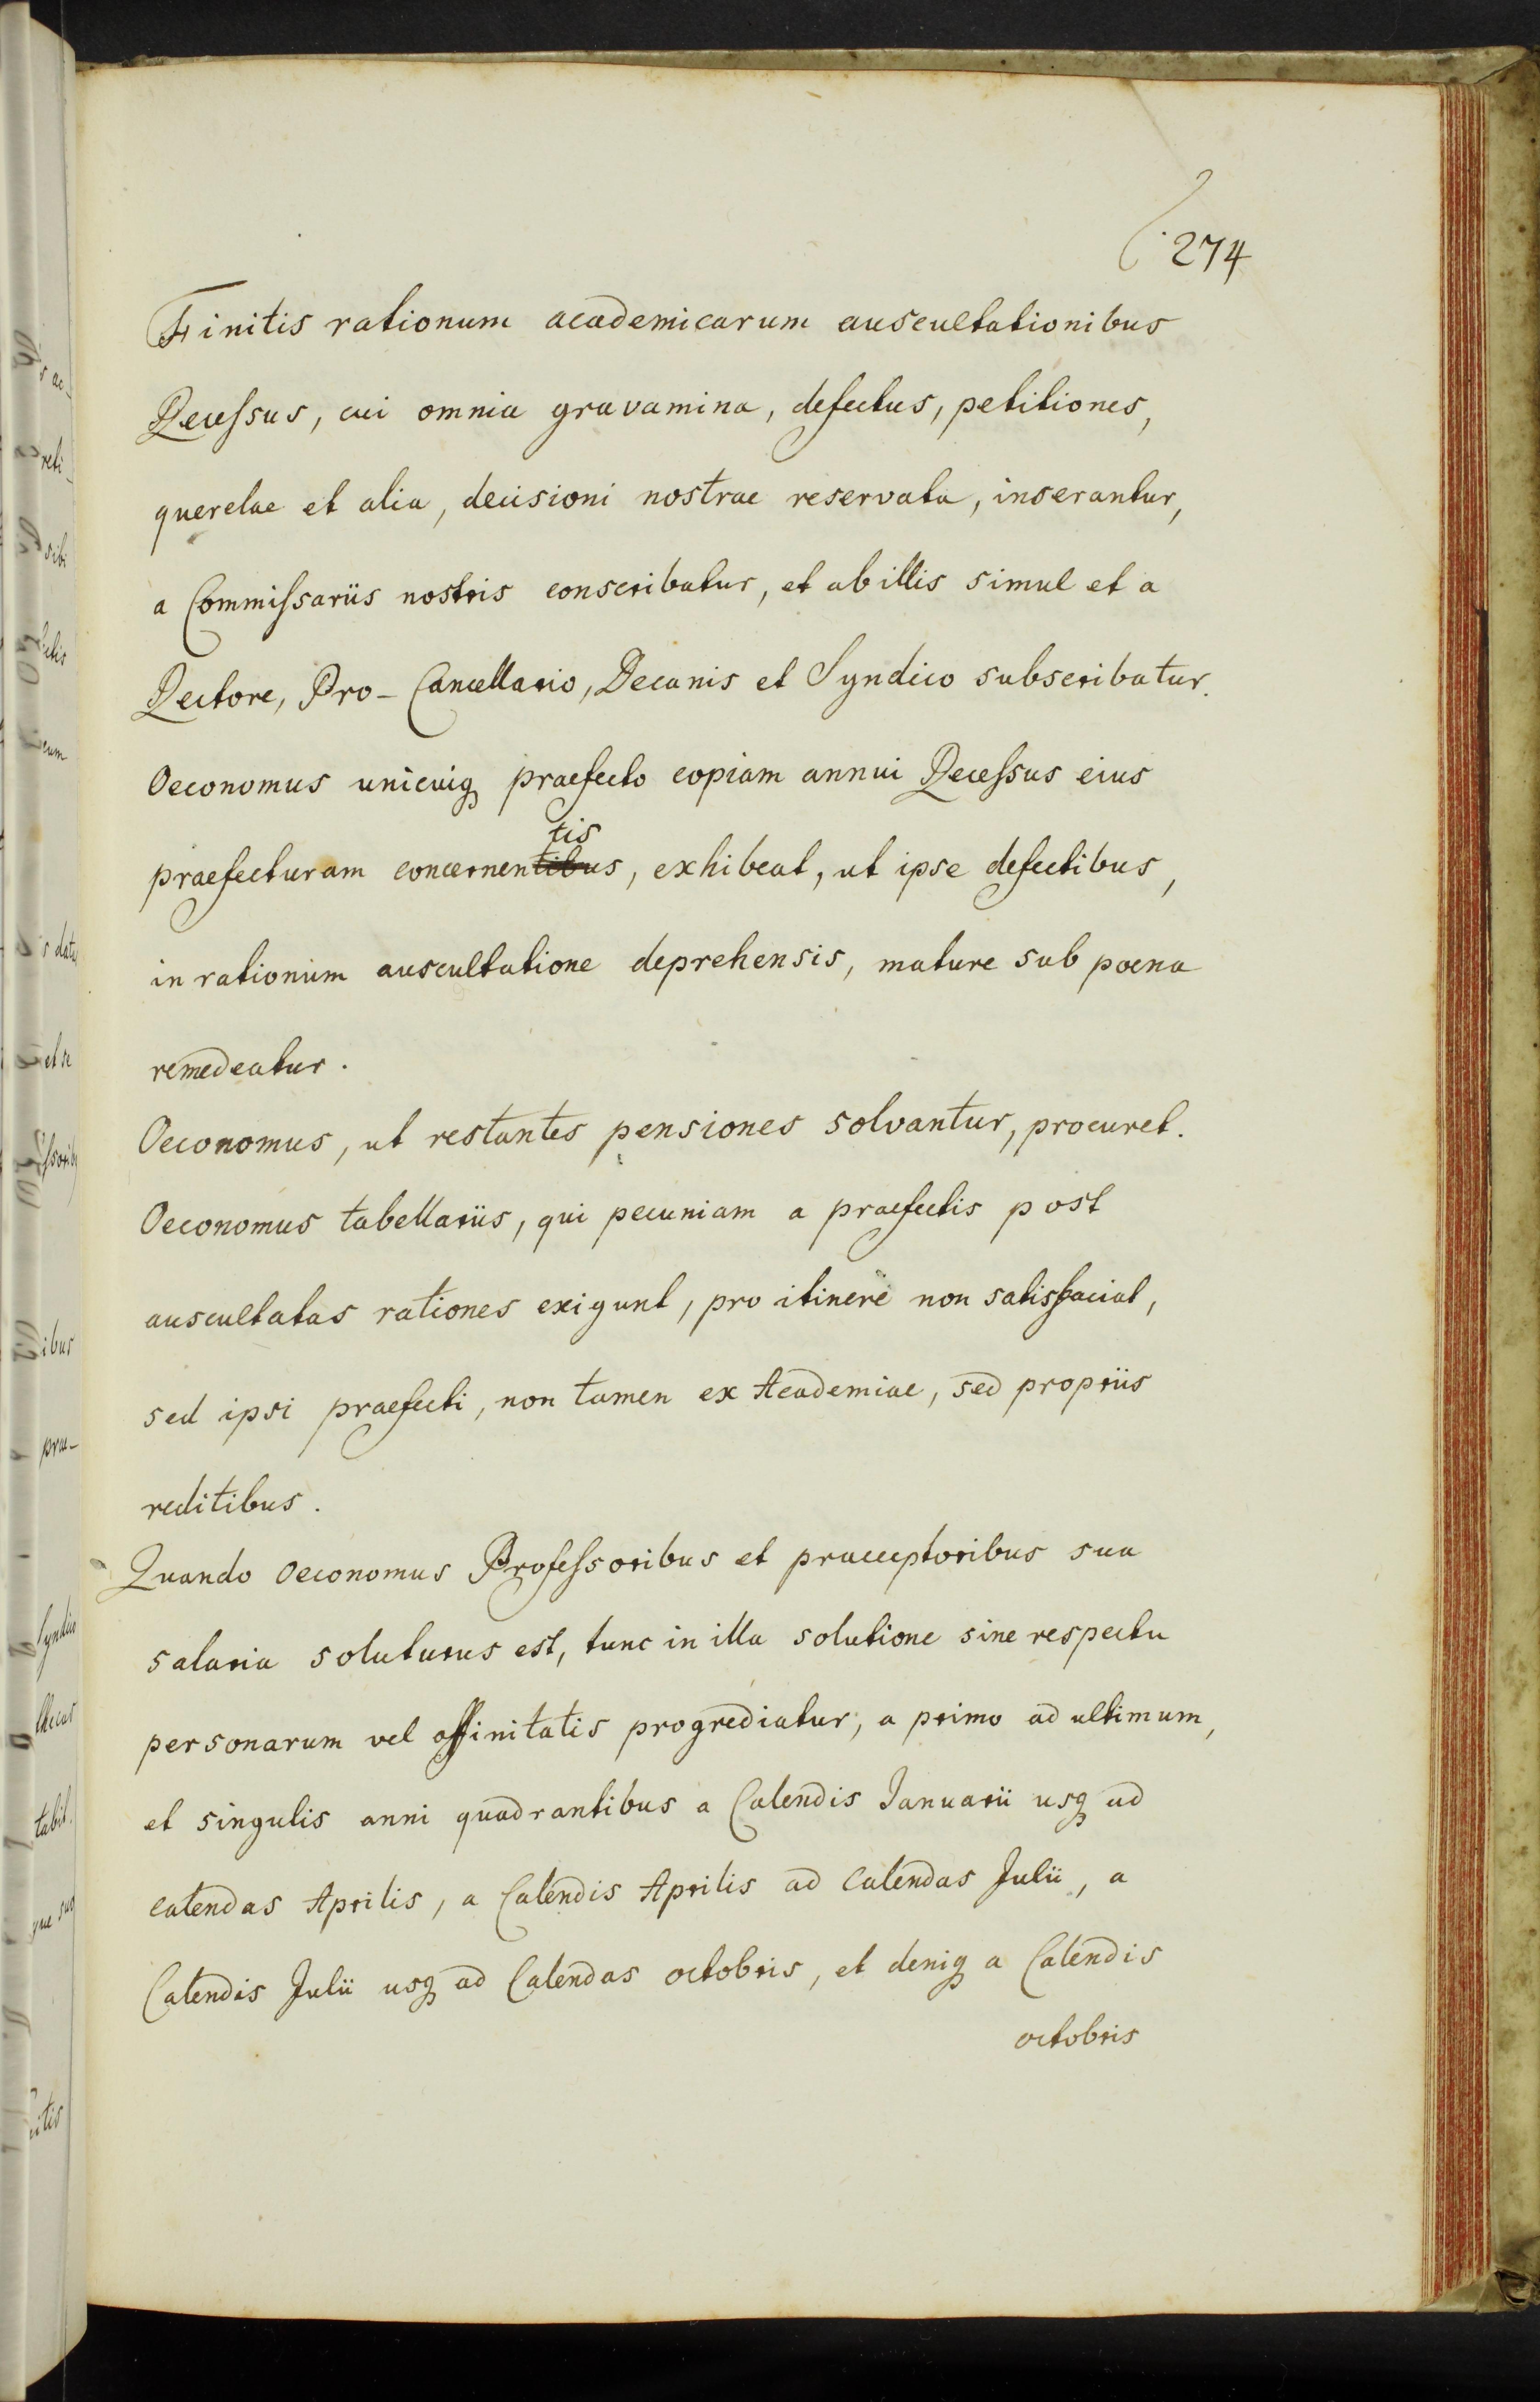 274
Finitis rationum academicarum auscultationibus
Recessus, cui omnia gravamina, defectus, petitiones,
querelae et alia, decisioni nostrae reservata, inserantur,
a Commissariis nostris conscribatur, et ab illis simul et a
Rectore, Pro-Cancellario, Decanis et Syndico subscribatur.
Oeconomus unicuiq praefecto copiam annui Recessus eius
tis
praefecturam concernentibus, exhibeat, ut ipse defectibus,
in rationum auscultatione deprehensis, mature sub poena
remedeatur.
Oeconomus, ut restantes pensiones solvantur, procuret.
Oeconomus tabellariis, qui pecuniam a praefectis post
auscultatas rationes exigunt, pro itinere non satisfaciat,
sed ipsi praefecti, non tamen ex Academiae, sed propriis
reditibus.
Quando Oeconomus Professoribus et praeceptoribus sua
salaria soluturus est, tunc in illa solutione sine respectu
personarum vel affinitatis progrediatur, a primo ad ultimum,
et singulis anni quadrantibus a Calendis Januarii usq ad
calendas Aprilis, a Calendis Aprilis ad Calendas Julii, a
Calendis Julii usq ad Calendas octobris, et deniq a Calendis
octobris